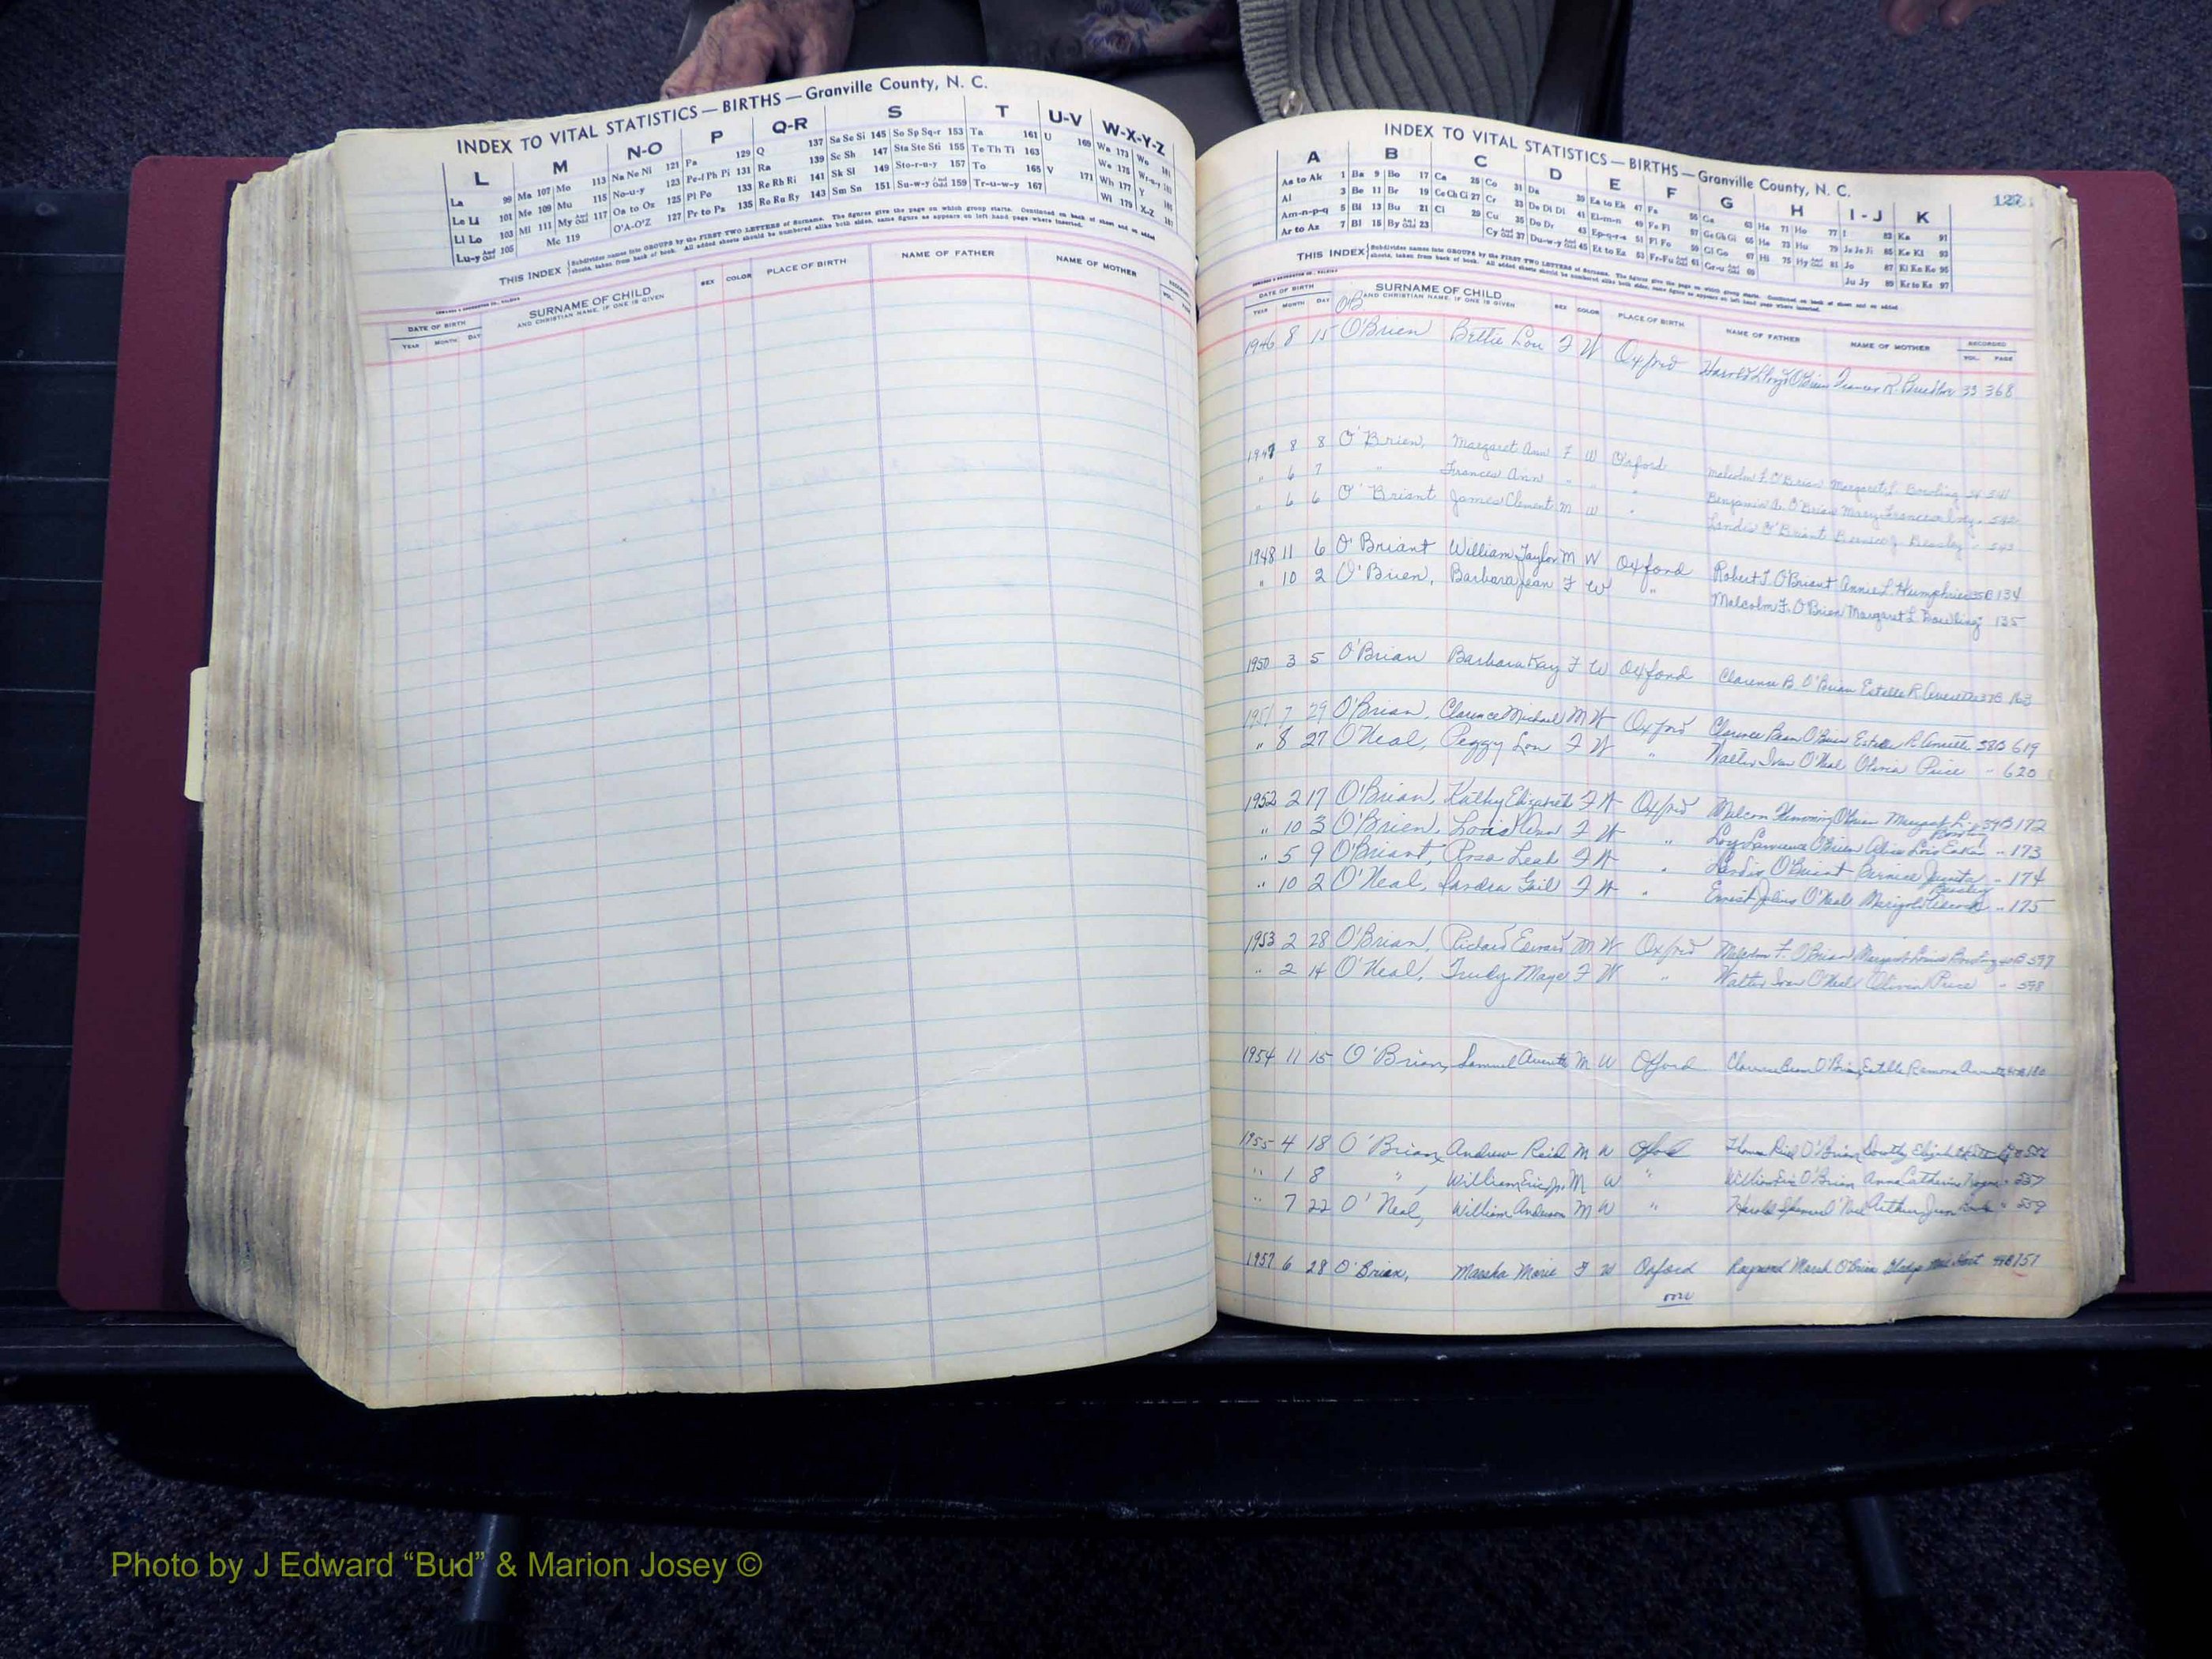 INDEX TO VITAL STATISTICS — BIRTHS — Granville County, N. C.
L M N-O P Q-R S T U-V W-X-Y-Z
La 99 Ma 107 Mo 113 Na Ne Ni 121 Pa 129 Q 137 Sa Se Si 145 So Sp Sq-r 153 Ta 161 U 169 Wa 173 Wo 181
Le Li 101 Me 109 Mu 115 No-u-y 123 Pe-f Ph Pi 131 Ra 139 Sc Sh 147 Sta Ste Sti 155 Te Th Ti 163 We 175
Ll Lo 103 Mi 111 My And Odd 117 Oa to Oz 125 Pl Po 133 Re Rh Ri 141 Sk Sl 149 Sto-r-u-y 157 To 165 V 171 Wh 177 Y
Lu-y And Odd 105 Mc 119 O'A-O'Z 127 Pr to Pz 135 Ro Ru Ry 143 Sm Sn 151 Su-w-y And Odd 159 Tr-u-w-y 167 Wi 179 X-Z 187
THIS INDEX Subdivides names into GROUPS by the FIRST TWO LETTERS of Surname. The figures give the page on which group starts. Continued on back of sheet and on added
sheets, taken from back of book. All added sheets should be numbered alike both sides, same figure as appears on left hand page where inserted.
DATE OF BIRTH SURNAME OF CHILD SEX COLOR PLACE OF BIRTH NAME OF FATHER NAME OF MOTHER RECORDED
YEAR MONTH DAY AND CHRISTIAN NAME, IF ONE IS GIVEN VOL. PAGE
INDEX TO VITAL STATISTICS — BIRTHS — Granville County, N. C.
127
A B C D E F G H I-J K
Aa to Ak 1 Ba 9 Bo 17 Ca 25 Co 31 Da 39 Ea to Ek 47 Fa 55 Ga 63 Ha 71 Ho 77 I 83 Ka 91
Al 3 Be 11 Br 19 Ce Ch Ci 27 Cr 33 De Di Dl 41 El-m-n 49 Fe Fi 57 Ge Gh Gi 65 He 73 Hu 79 Ja Je Ji 85 Ke Kl 93
Am-n-p-q 5 Bi 13 Bu 21 Cl 29 Cu 35 Do Dr 43 Ep-q-r-s 51 Fl Fo 59 Gl Go 67 Hi 75 Hy And Odd 81 Jo 87 Ki Kn Ko 95
Ar to Az 7 Bl 15 By And Odd 23 Cy And Odd 37 Du-w-y And Odd 45 Et to Ez 53 Fr-Fu And Odd 61 Gr-u And Odd 69 Ju Jy 89 Kr to Kz 97
THIS INDEX Subdivides names into GROUPS by the FIRST TWO LETTERS of Surname. The figures give the page on which group starts. Continued on back of sheet and on added
sheets, taken from back of book. All added sheets should be numbered alike both sides, same figure as appears on left hand page where inserted.
DATE OF BIRTH SURNAME OF CHILD SEX COLOR PLACE OF BIRTH NAME OF FATHER NAME OF MOTHER RECORDED
YEAR MONTH DAY AND CHRISTIAN NAME, IF ONE IS GIVEN VOL. PAGE
O'B
1946 8 15 O'Brien Bettie Lou F W Oxford Harold Lloyd O'Brien Frances R. 33 368
1947 8 8 O'Brien, Margaret Ann F W Oxford Malcolm F. O'Brian Margaret L. Bowling 34 541
" 6 7 " Frances Ann " " " Benjamin A. O'Brian Mary Frances " 542
" 6 6 O'Briant James Clement M W " Landis O'Briant Bernice J. Beasley " 543
1948 11 6 O'Briant William Taylor M W Oxford Robert T. O'Briant Annie L. Humphries 35B 134
" 10 2 O'Brien, Barbara Jean F W " Malcolm F. O'Brien Margaret L Bowling 135
1950 3 5 O'Brian Barbara Kay F W Oxford Clarence B. O'Brian Estelle R. Averette 37B 163
1951 7 29 O'Brian, Clarence Michael M W Oxford Clarence Bean O'Brien Estelle R. Averette 38B 619
" 8 27 O'Neal, Peggy Lou F W " Walter Ivan O'Neal Olivia Price " 620
1952 2 17 O'Brian, Kathy Elizabeth F W Oxford Malcom Flemming O'Brien Margaret L. Bowling 39B 172
" 10 3 O'Brien, Lois Ann F W " Loyd Lawrence O'Brien Alice Lois Eakes " 173
" 5 9 O'Briant, Rosa Leah F W " Landis O'Briant Bernice Juanita Beasley " 174
" 10 2 O'Neal, Sandra Gail F W " Ernest Julius O'Neal Marigold " 175
1953 2 28 O'Brian, Richard Edward M W Oxford Malcolm F. O'Brian Margaret Louise Bowling 40B 597
" 2 14 O'Neal, Trudy Maye F W " Walter Ivan O'Neal Olivia Price " 598
1954 11 15 O'Brian, Samuel Averette M W Oxford Clarence Bean O'Brian, Estelle Ramona Averette 180
1955 4 18 O'Brian, Andrew Reid M W Oxford Thomas Reid O'Brian Dorothy Elizabeth 556
" 1 8 " , William Eric Jr. M W " William Eric O'Brian Anna Catherine " 557
" 7 22 O'Neal, William Anderson M W " Harold Samuel O'Neal " 559
1957 6 28 O'Brian, Marsha Marie F W Oxford Raymond Marsh O'Brien Gladys 751
Photo by J Edward “Bud” & Marion Josey ©